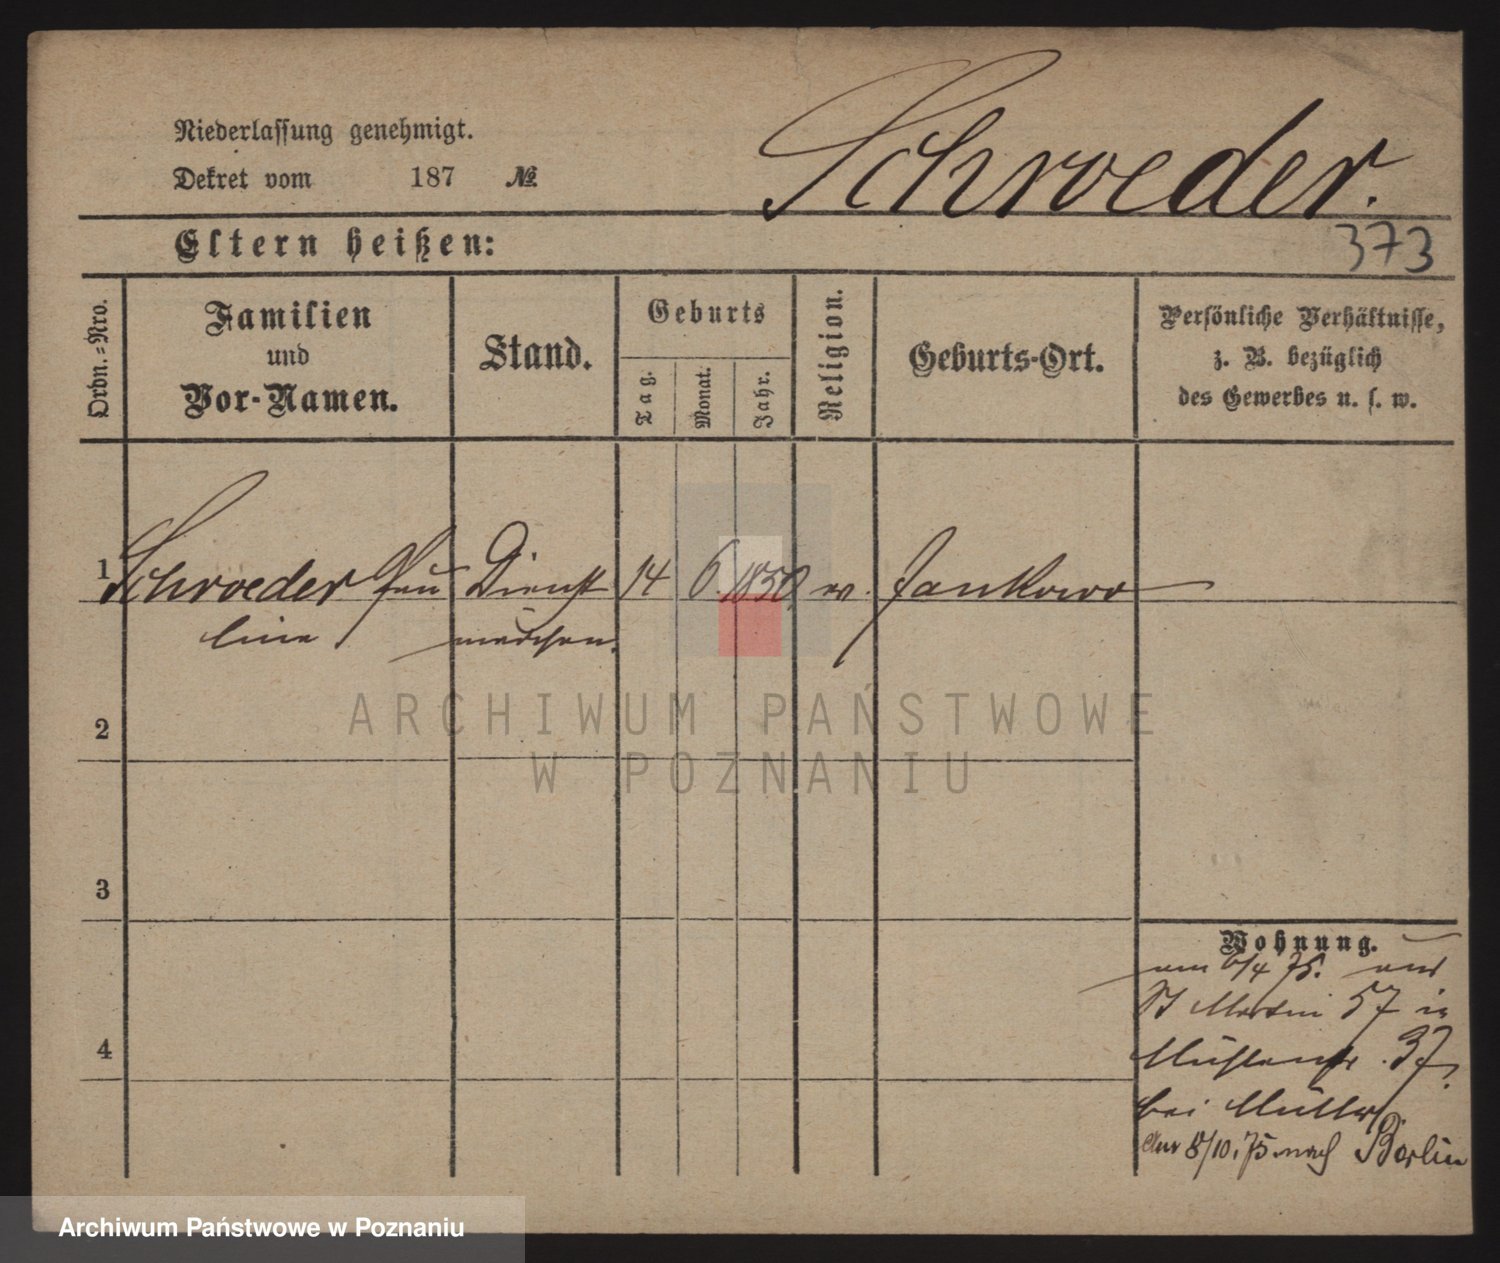 Niederlassung genehmigt.
Dekret vom 187 №
Schroeder.
Eltern heißen:
373
Ordn.-Nro.
Familien
und
Vor-Namen.
Stand.
Geburts
Tag.
Monat.
Jahr.
Religion.
Geburts-Ort.
Persönliche Verhältnisse,
z. B. bezüglich
des Gewerbes u. s. w.
1 Schroeder Pau Dienst 14 6. 1850, ev. Jankowo
line mädchen.
ARCHIWUM PAŃSTWOWE
W POZNANIU
2
3
4
Wohnung.
am 6/4 75. aus
St Martin 57 in
Mühlenstr. 37.
bei Müller.
Am 8/10. 75 nach Berlin
Archiwum Państwowe w Poznaniu